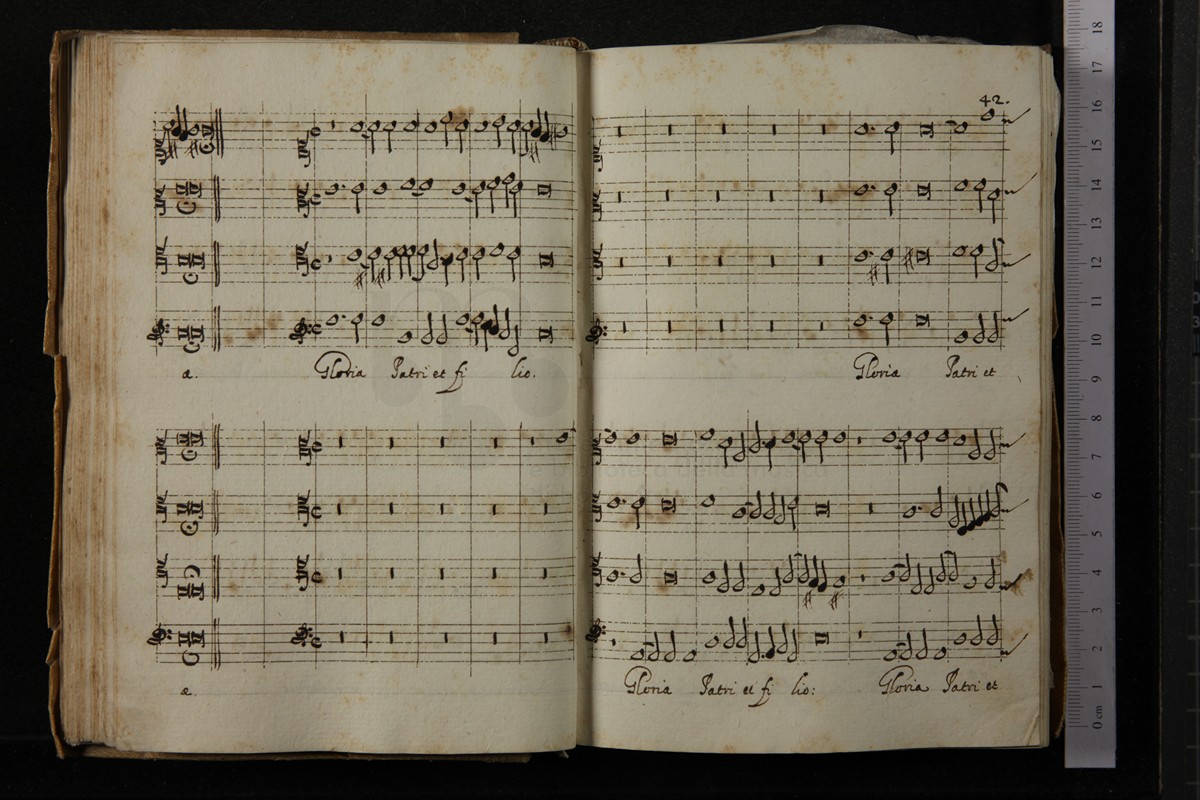 æ. Gloria Patri et fi lio.
æ.
42.
Gloria Patri et
Gloria Patri et fi lio: Gloria Patri et
18
17
16
15
14
13
12
11
10
9
8
7
6
5
4
3
2
1
0 cm